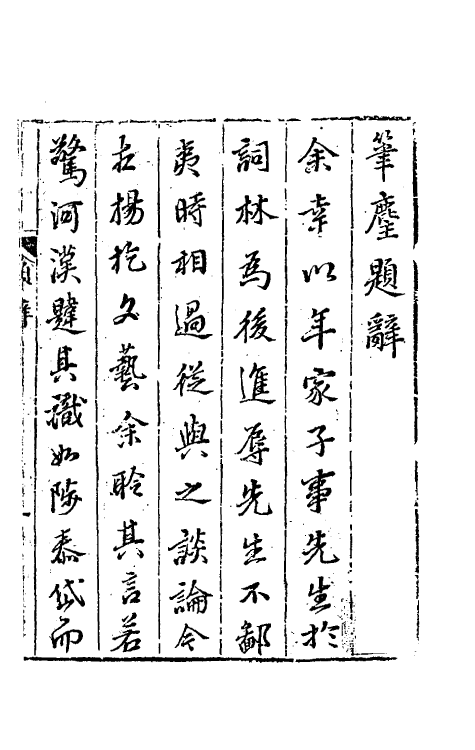 筆麈題辭
余幸以年家子事先生於
詞林為後進辱先生不鄙
夷時相過從與之談論今
古揚扢文藝余聆其言若
驚河漢韙其識如陟泰岱而
題辭